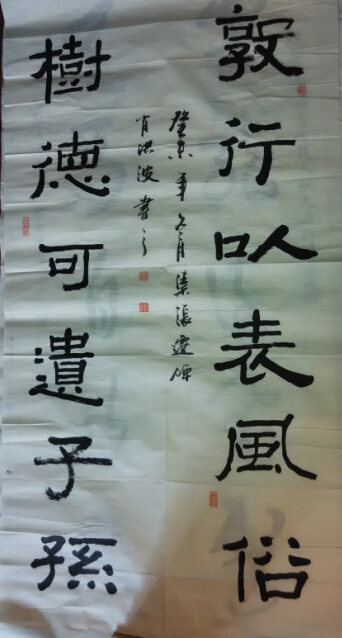 敦行以表風俗
樹德可遺子孫
癸未年冬月集張遷碑
肖洪波書之